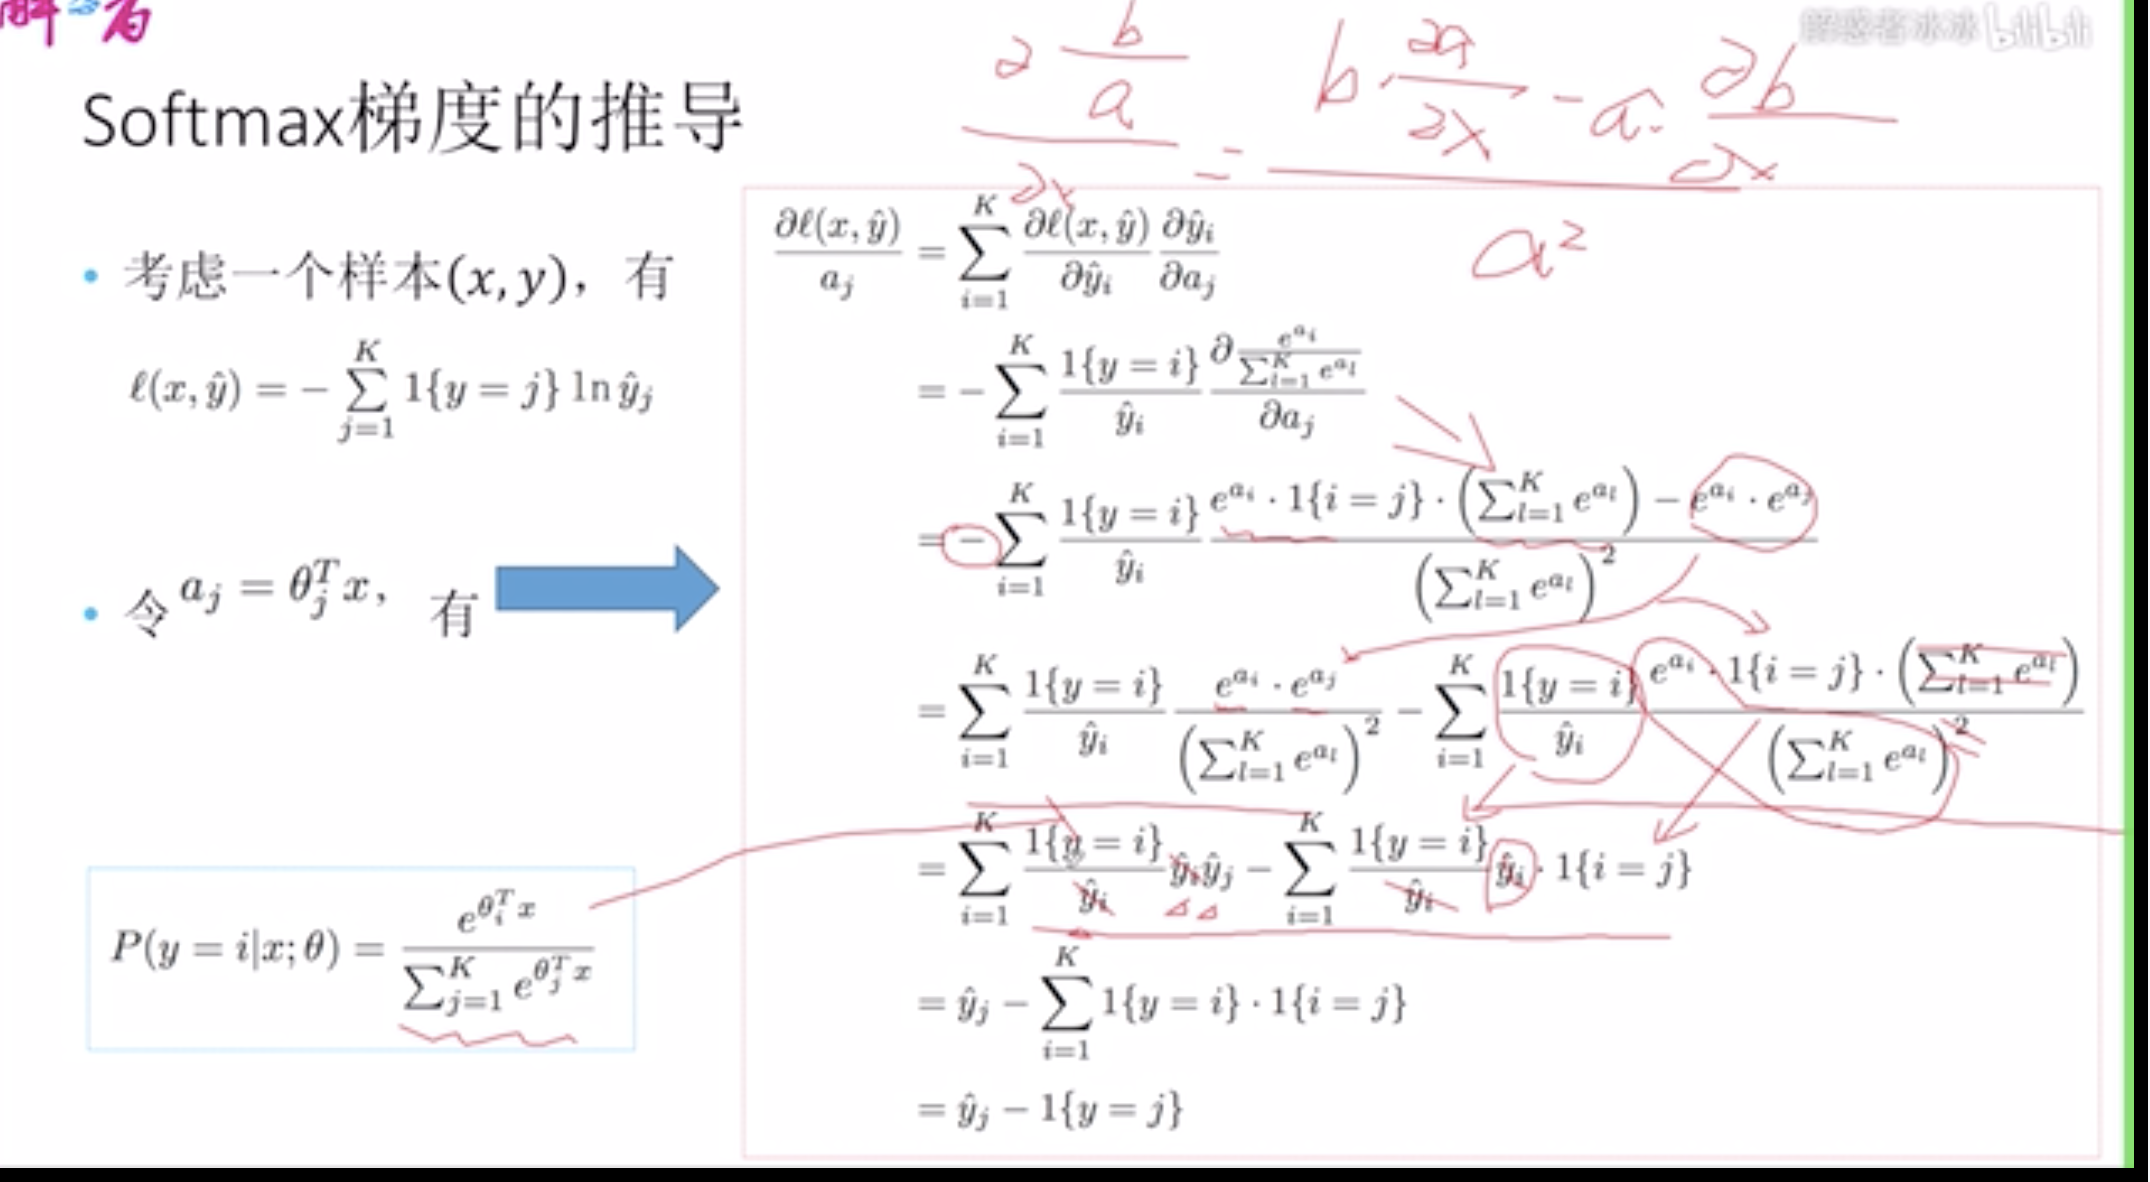 解惑者冰冰 bilibili
∂ b/a / ∂x = (b · ∂a/∂x - a · ∂b/∂x) / a²
Softmax梯度的推导
• 考虑一个样本(x, y)，有
ℓ(x, ŷ) = − ∑_{j=1}^{K} 1{y = j} ln ŷ_j
• 令 a_j = θ_j^T x, 有
P(y = i|x; θ) = e^{θ_i^T x} / ∑_{j=1}^{K} e^{θ_j^T x}
∂ℓ(x, ŷ) / a_j = ∑_{i=1}^{K} ∂ℓ(x, ŷ)/∂ŷ_i ∂ŷ_i/∂a_j
= − ∑_{i=1}^{K} 1{y = i}/ŷ_i ∂ (e^{a_i} / ∑_{l=1}^{K} e^{a_l}) / ∂a_j
= − ∑_{i=1}^{K} 1{y = i}/ŷ_i (e^{a_i} · 1{i = j} · (∑_{l=1}^{K} e^{a_l}) − e^{a_i} · e^{a_j}) / (∑_{l=1}^{K} e^{a_l})^2
= ∑_{i=1}^{K} 1{y = i}/ŷ_i e^{a_i} · e^{a_j} / (∑_{l=1}^{K} e^{a_l})^2 − ∑_{i=1}^{K} 1{y = i}/ŷ_i e^{a_i} · 1{i = j} · (∑_{l=1}^{K} e^{a_l}) / (∑_{l=1}^{K} e^{a_l})^2
= ∑_{i=1}^{K} 1{y = i}/ŷ_i ŷ_i ŷ_j − ∑_{i=1}^{K} 1{y = i}/ŷ_i ŷ_i · 1{i = j}
= ŷ_j − ∑_{i=1}^{K} 1{y = i} · 1{i = j}
= ŷ_j − 1{y = j}